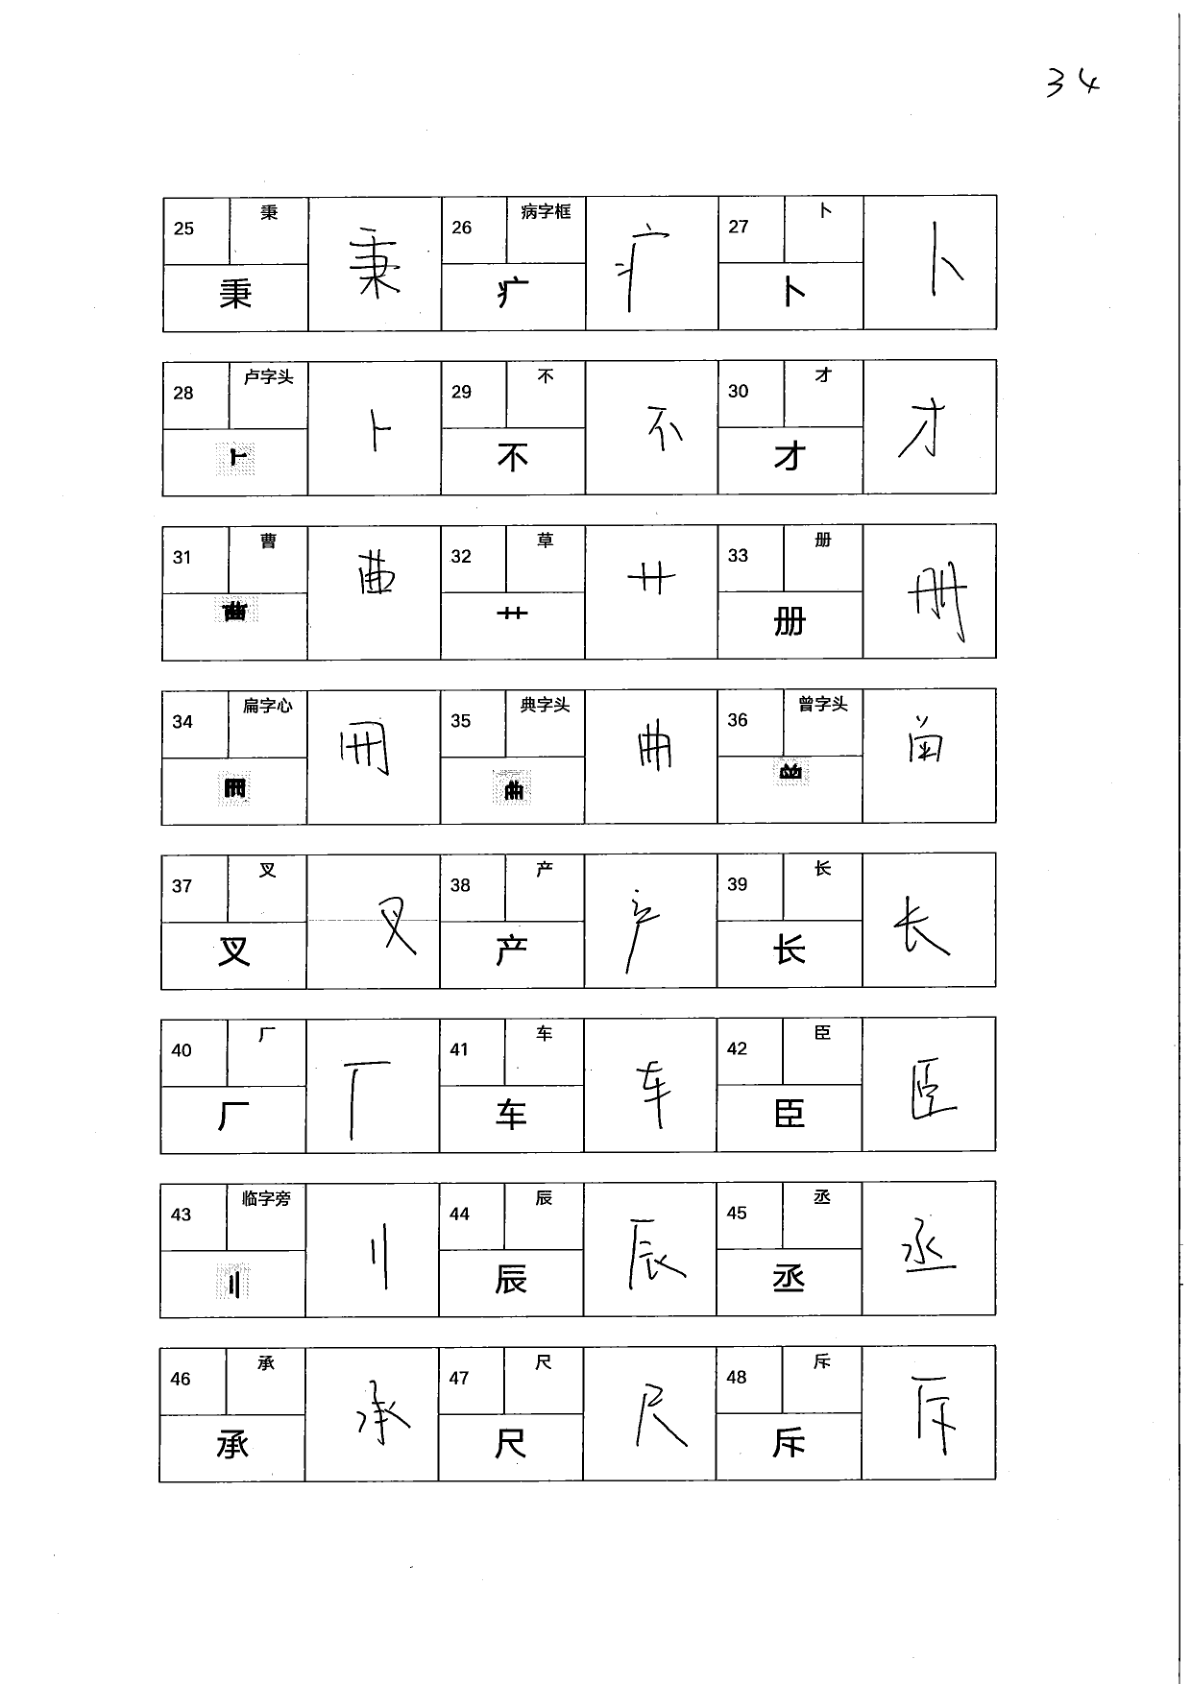 34
25 秉 秉 26 病字框 疒 27 卜 卜
秉 疒 卜
28 卢字头 ⺊ 29 不 不 30 才 才
⺊ 不 才
31 曹 32 草 艹 33 册 册
艹 册
34 扁字心 35 典字头 36 曾字头
37 叉 叉 38 产 产 39 长 长
叉 产 长
40 厂 厂 41 车 车 42 臣 臣
厂 车 臣
43 临字旁 〢 44 辰 辰 45 丞 丞
〢 辰 丞
46 承 承 47 尺 尺 48 斥 斥
承 尺 斥